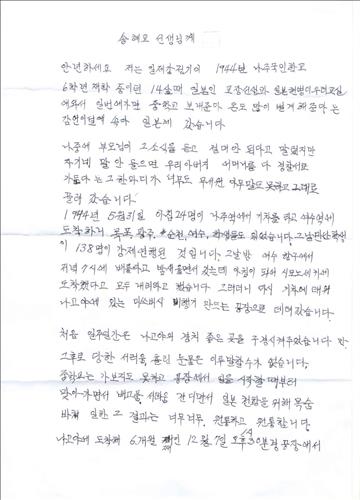 송혜교 선생님께
안녕하세요 저는 일제강점기에 1944년 나주국민학교
6학년 재학 중이던 14살때 일본인 교장선생과 일본헌병이 우리교실
에와서 일본에가면 중학교 보내준다 돈도 많이 벌게 해준다는
감언이설에 속아 일본에 갔습니다
나중에 부모님이 그소식을 듣고 절대안 된다고 말렸지만
자기네 말 안 들으면 우리아버지 어머니를 다 경찰서로
가둔다는 그한마디가 너무도 무서워 아무말도 못하고 그대로
끌려 갔습니다.
1944년 5월31일 아침 24명이 나주역에서 기차를 타고 여수역에
도착하니 목포, 광주, 순천, 여수, 학생들도 와있습니다. 그날 전남학생
이 138명이 강제연행된 것입니다. 그날밤 여수 항구에서
저녁 7시에 배를타고 밤새울면서 갔는데 아침이 되어 시모노세키에
도착했다고 모두 내리라고 했습니다 그러더니 다시 기차에 태워
나고야에 있는 미쓰비시 비행기 만드는 공장으로 데려갔습니다.
처음 일주일간은 나고야의 경치 좋은 곳을 구경시켜주었습니다
그후로 당한 서러움 흘린 눈물은 이루말할수가 없습니다.
중학교는 가보지도 못하고 공장에서 일을 시작할 때부터
맞아가면서 배고픔, 서러움 견디면서 일본 전쟁을 위해 목숨
바쳐 일한 그 결과는 너무너무 원통하고 원통합니다.
나고야에 도착해 6개월 째인 12월7일 오후 1시30분경 공장에서